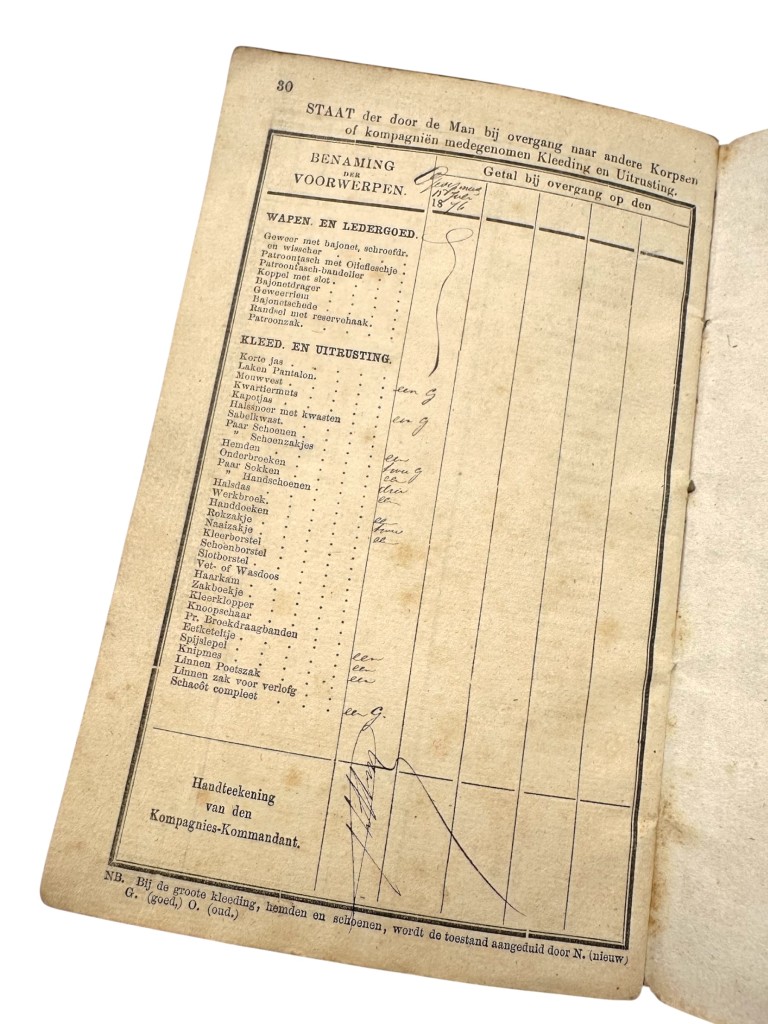 30
STAAT der door de Man bij overgang naar andere Korpsen
of kompagniën medegenomen Kleeding en Uitrusting.
BENAMING
DER
VOORWERPEN.
Getal bij overgang op den
18 76
WAPEN. EN LEDERGOED.
Geweer met bajonet, schroefdr.
en wisscher
Patroontasch met Oliefleschje
Patroontasch-bandelier
Koppel met slot
Bajonetdrager
Geweerriem
Bajonetschede
Randsel met reservehaak.
Patroonzak.
KLEED. EN UITRUSTING.
Korte jas
Laken Pantalon.
Mouwvest
een G
Kwartiermuts
Kapotjas
een G
Halssnoer met kwasten
Sabelkwast.
Paar Schoenen
een
„ Schoenzakjes
twee G
Hemden
een
Onderbroeken
drie
Paar Sokken
een
„ Handschoenen
Halsdas
een
Werkbroek.
twee
Handdoeken
een
Rokzakje
Naaizakje
Kleerborstel
Schoenborstel
Slotborstel
Vet- of Wasdoos
Haarkam
Zakboekje
Kleerklopper
Knoopschaar
Pr. Broekdraagbanden
een
Eetketeltje
een
Spijslepel
een
Knipmes
Linnen Poetszak
Linnen zak voor verlofg
een G.
Schacôt compleet
Handteekening
van den
Kompagnies-Kommandant.
NB. Bij de groote kleeding, hemden en schoenen, wordt de toestand aangeduid door N. (nieuw)
G. (goed,) O. (oud.)